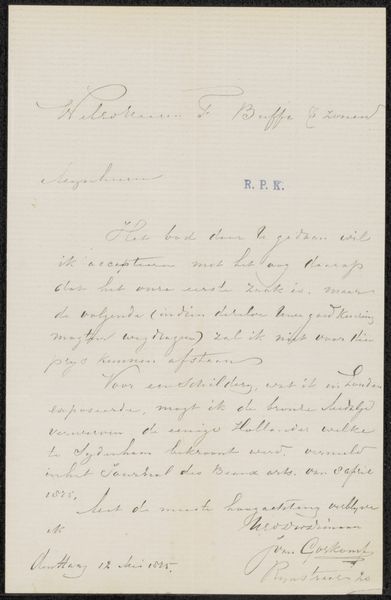 Weledelheeren F Buffa & zonen
Mynheeren
R. P. K.
Het bod door U gedaan wil
ik accepteeren met het oog daarop
dat het onze eerste zaak is, maar
de volgende (indien dezelve Uwe goedkeuring
mogten wegdragen) zal ik niet voor dien
prys kunnen afstaan
Voor een Schildery, wat ik in Londen
exposeerde, mogt ik de bronze Medalje
verwerven de eenige Hollander welke
te Sydenham bekroont werd, vermeld
in het Journal des Beaux arts. van 3 april
1875.
Met de meeste hoogachting verblyve
ik
UwEdDWDienaar
J van Gorkom Jr
den Haag 12 Mei 1875.
Rynstraat 20